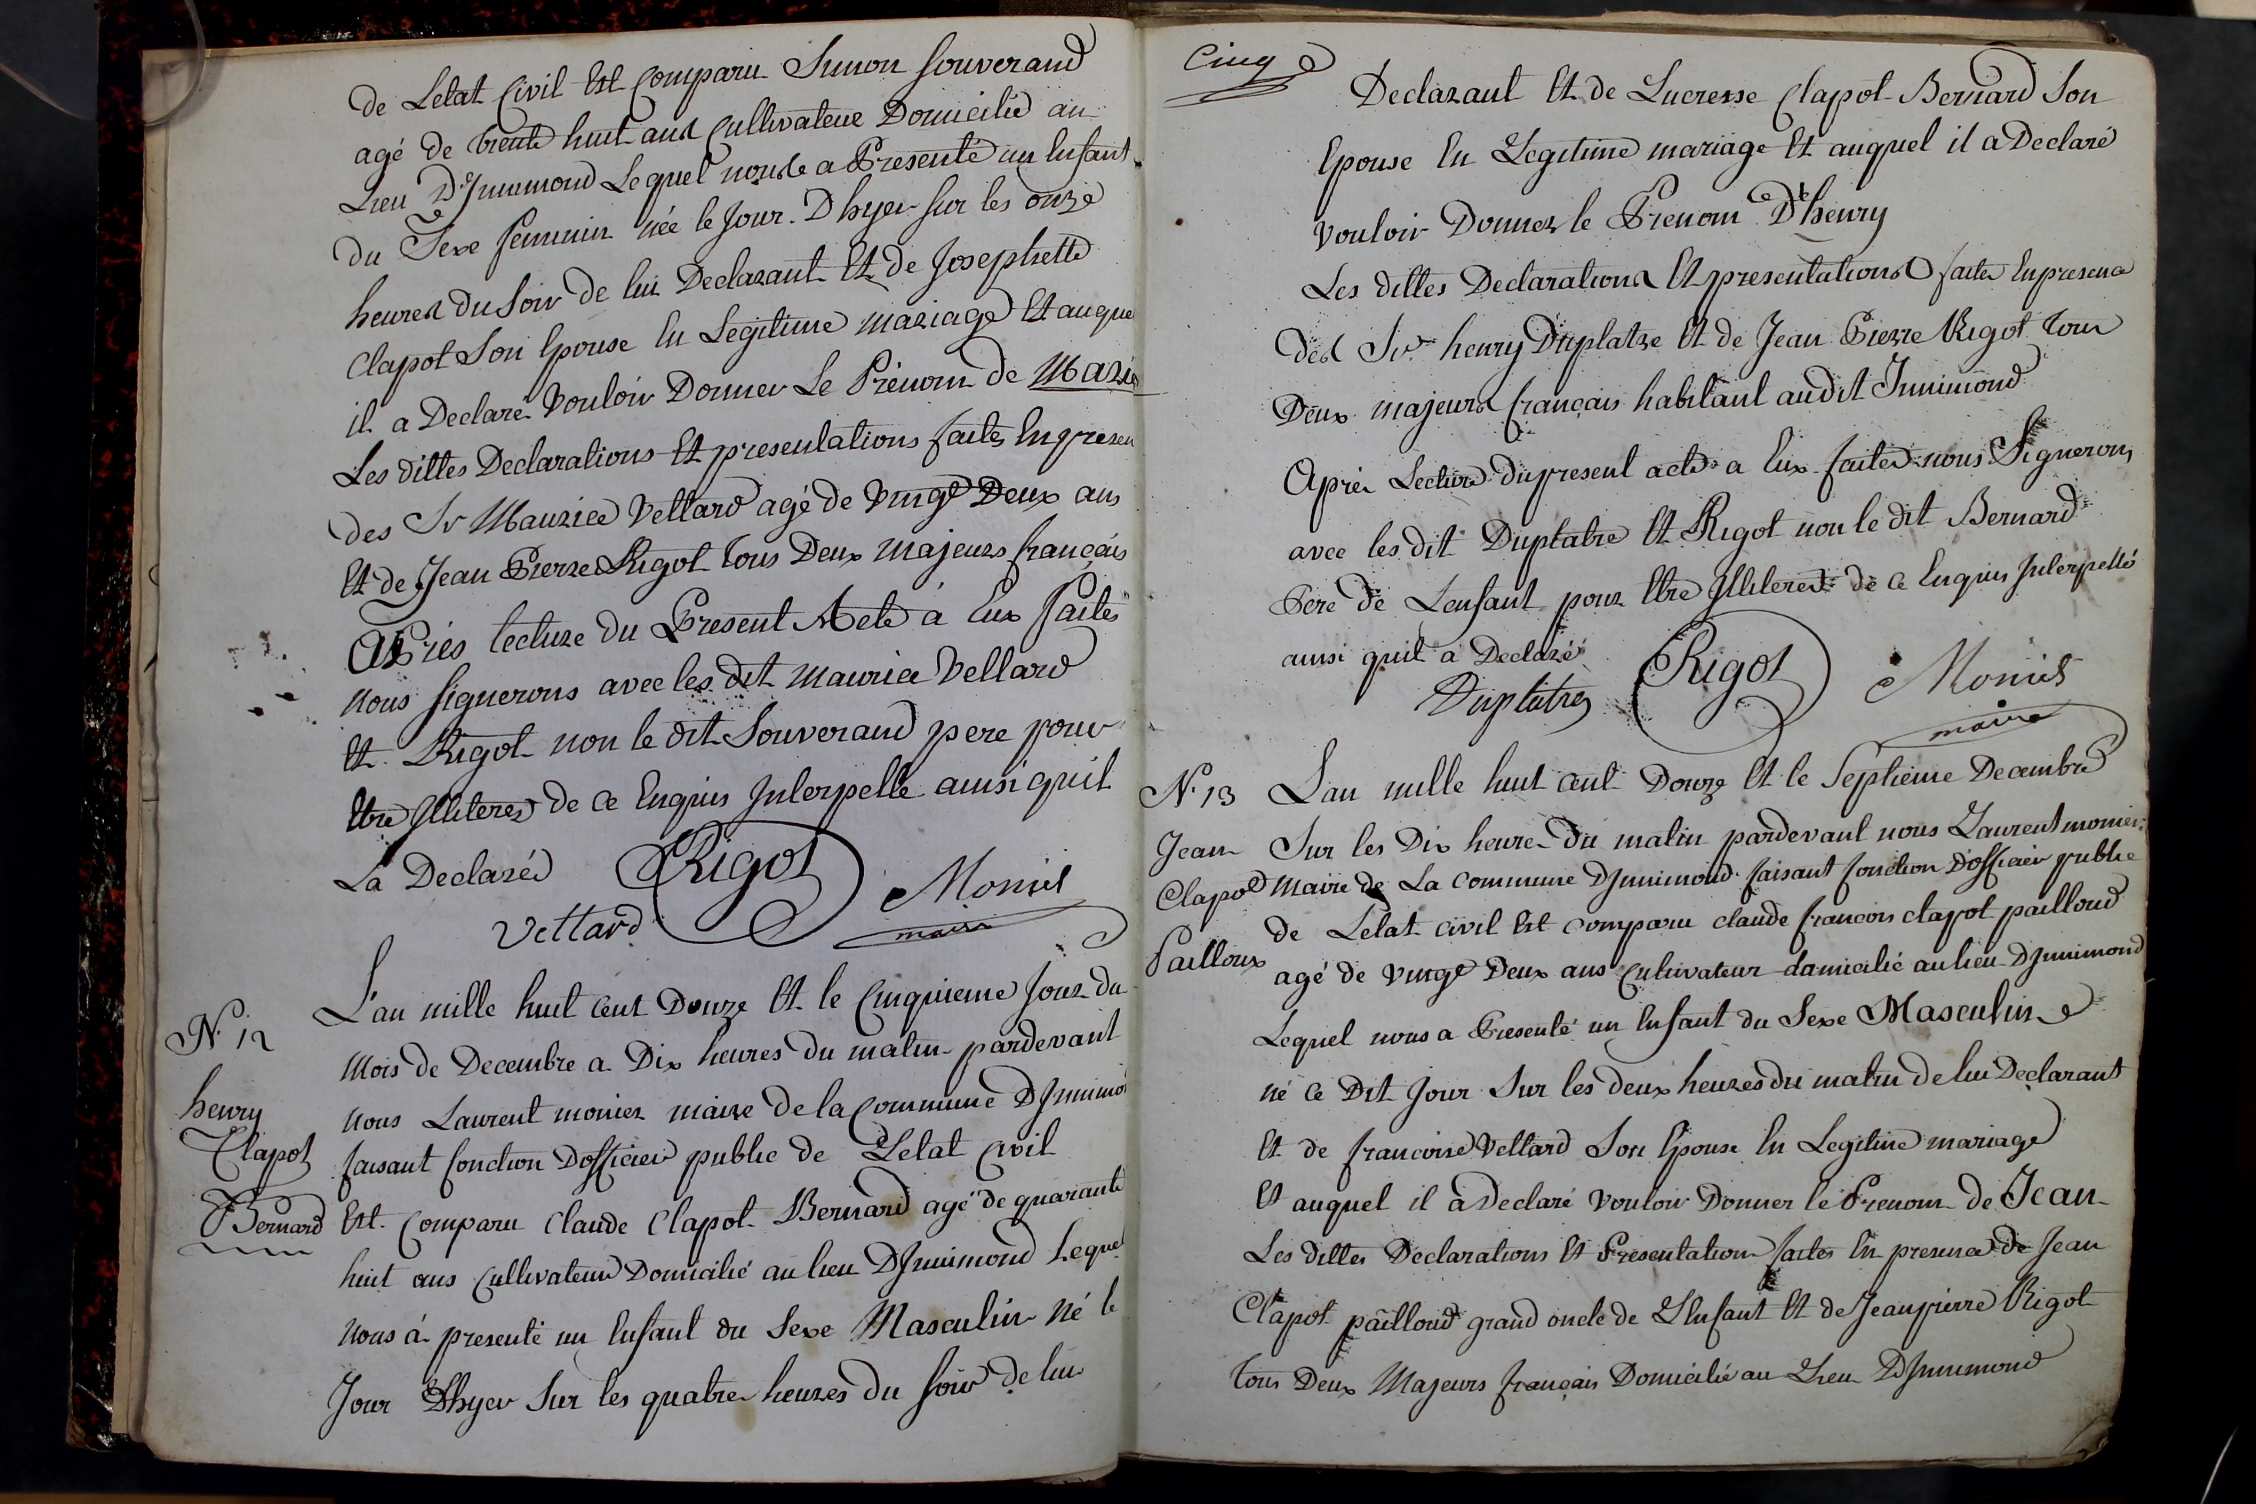 de Letat Civil Est Comparu Simon Souverand
agé de trente huit ans Cultivateur Domicilié au
Lieu D'Innimond Lequel nous a Presenté un Enfant
du Sexe feminin née le Jour D hyer sur les onze
heures du Soir de lui Declarant Et de Josephette
Clapot Son Epouse En Legitime mariage Et auque
il a Declaré Vouloir Donner Le Prénom de Marie
Les dittes Declarations Et presentations faites En presen
des Sr Maurice Vettard agé de Vingt Deux ans
Et de Jean Pierre Rigot tous Deux Majeurs français
Après lecture du Present Acte à Eux faites
nous signerons avec les dit Maurice Vellard
Et Rigot non le dit Souverand pere pour
Etre Illiteres de ce Enquis Interpelle ainsi quil
La Declaré
Rigot
Monier
maire
Vettard
N. 12
henry
Clapot
Bernard
L'an mille huit Cent Douze Et le Cinquieme Jour du
Mois de Decembre a Dix heures du matin pardevant
nous Laurent monier maire de la Commune D Innimo
faisant fonction D'officier public de L'etat Civil
Est Comparu Claude Clapot Bernard agé de quarante
huit ans Cultivateur Domicilié au lieu D Innimond Leque
nous à presenté un Enfant du Sexe Masculin Né le
Jour Dhyer Sur les quatre heures du Soir de lui
Cinq
Declarant Et de Lucresse Clapot Bernard Son
Epouse En Legitime mariage Et auquel il a Declaré
vouloir Donner le Prenom D'henry
Les dittes Declarations Et presentations faites En presence
des Srs henry Duplatre Et de Jean Pierre Rigot tous
Deux majeurs français habitant audit Innimond
Après Lecture du present acte a Eux faites nous Signerons
avec les dit Duplatre Et Rigot non le dit Bernard
Pere de L'enfant pour Etre Illiteres de ce Enquis Interpellé
ainsi quil a Declaré
Duplatre
Rigot
Monier
maire
N. 13
Jean
Clapot
Pailloux
L'an mille huit cent Douze Et le Septieme Decembre
Sur les Dix heures du matin pardevant nous Laurent monier
Maire de La Commune D Innimond faisant fonction D'officier public
de Letat civil Est comparu claude francois clapot pailloud
agé de vingt Deux ans Cultivateur domicilié au lieu D Innimond
Lequel nous a Presenté un Enfant du Sexe Masculin
né ce Dit Jour Sur les deux heures du matin de lui Declarant
Et de francoise Vettard Son Epouse En Legitime mariage
Et auquel il à Declaré vouloir Donner le Prenom de Jean
Les dittes Declarations Et Presentation faites En presence de Jean
Clapot pailloud grand oncle de L'Enfant Et de Jean pierre Rigot
tous Deux Majeurs français Domicilié au Lieu D Innimond